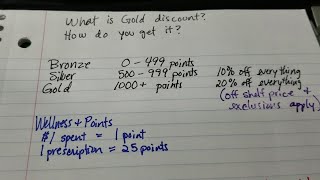 What is Gold discount?
How do you get it?
Bronze 0 - 499 points
Silber 500 - 999 points 10% off everything
Gold 1000+ points 20% off everything
(off shelf price +
exclusions apply)
Wellness + Points
$1 spent = 1 point
1 prescription = 25 points